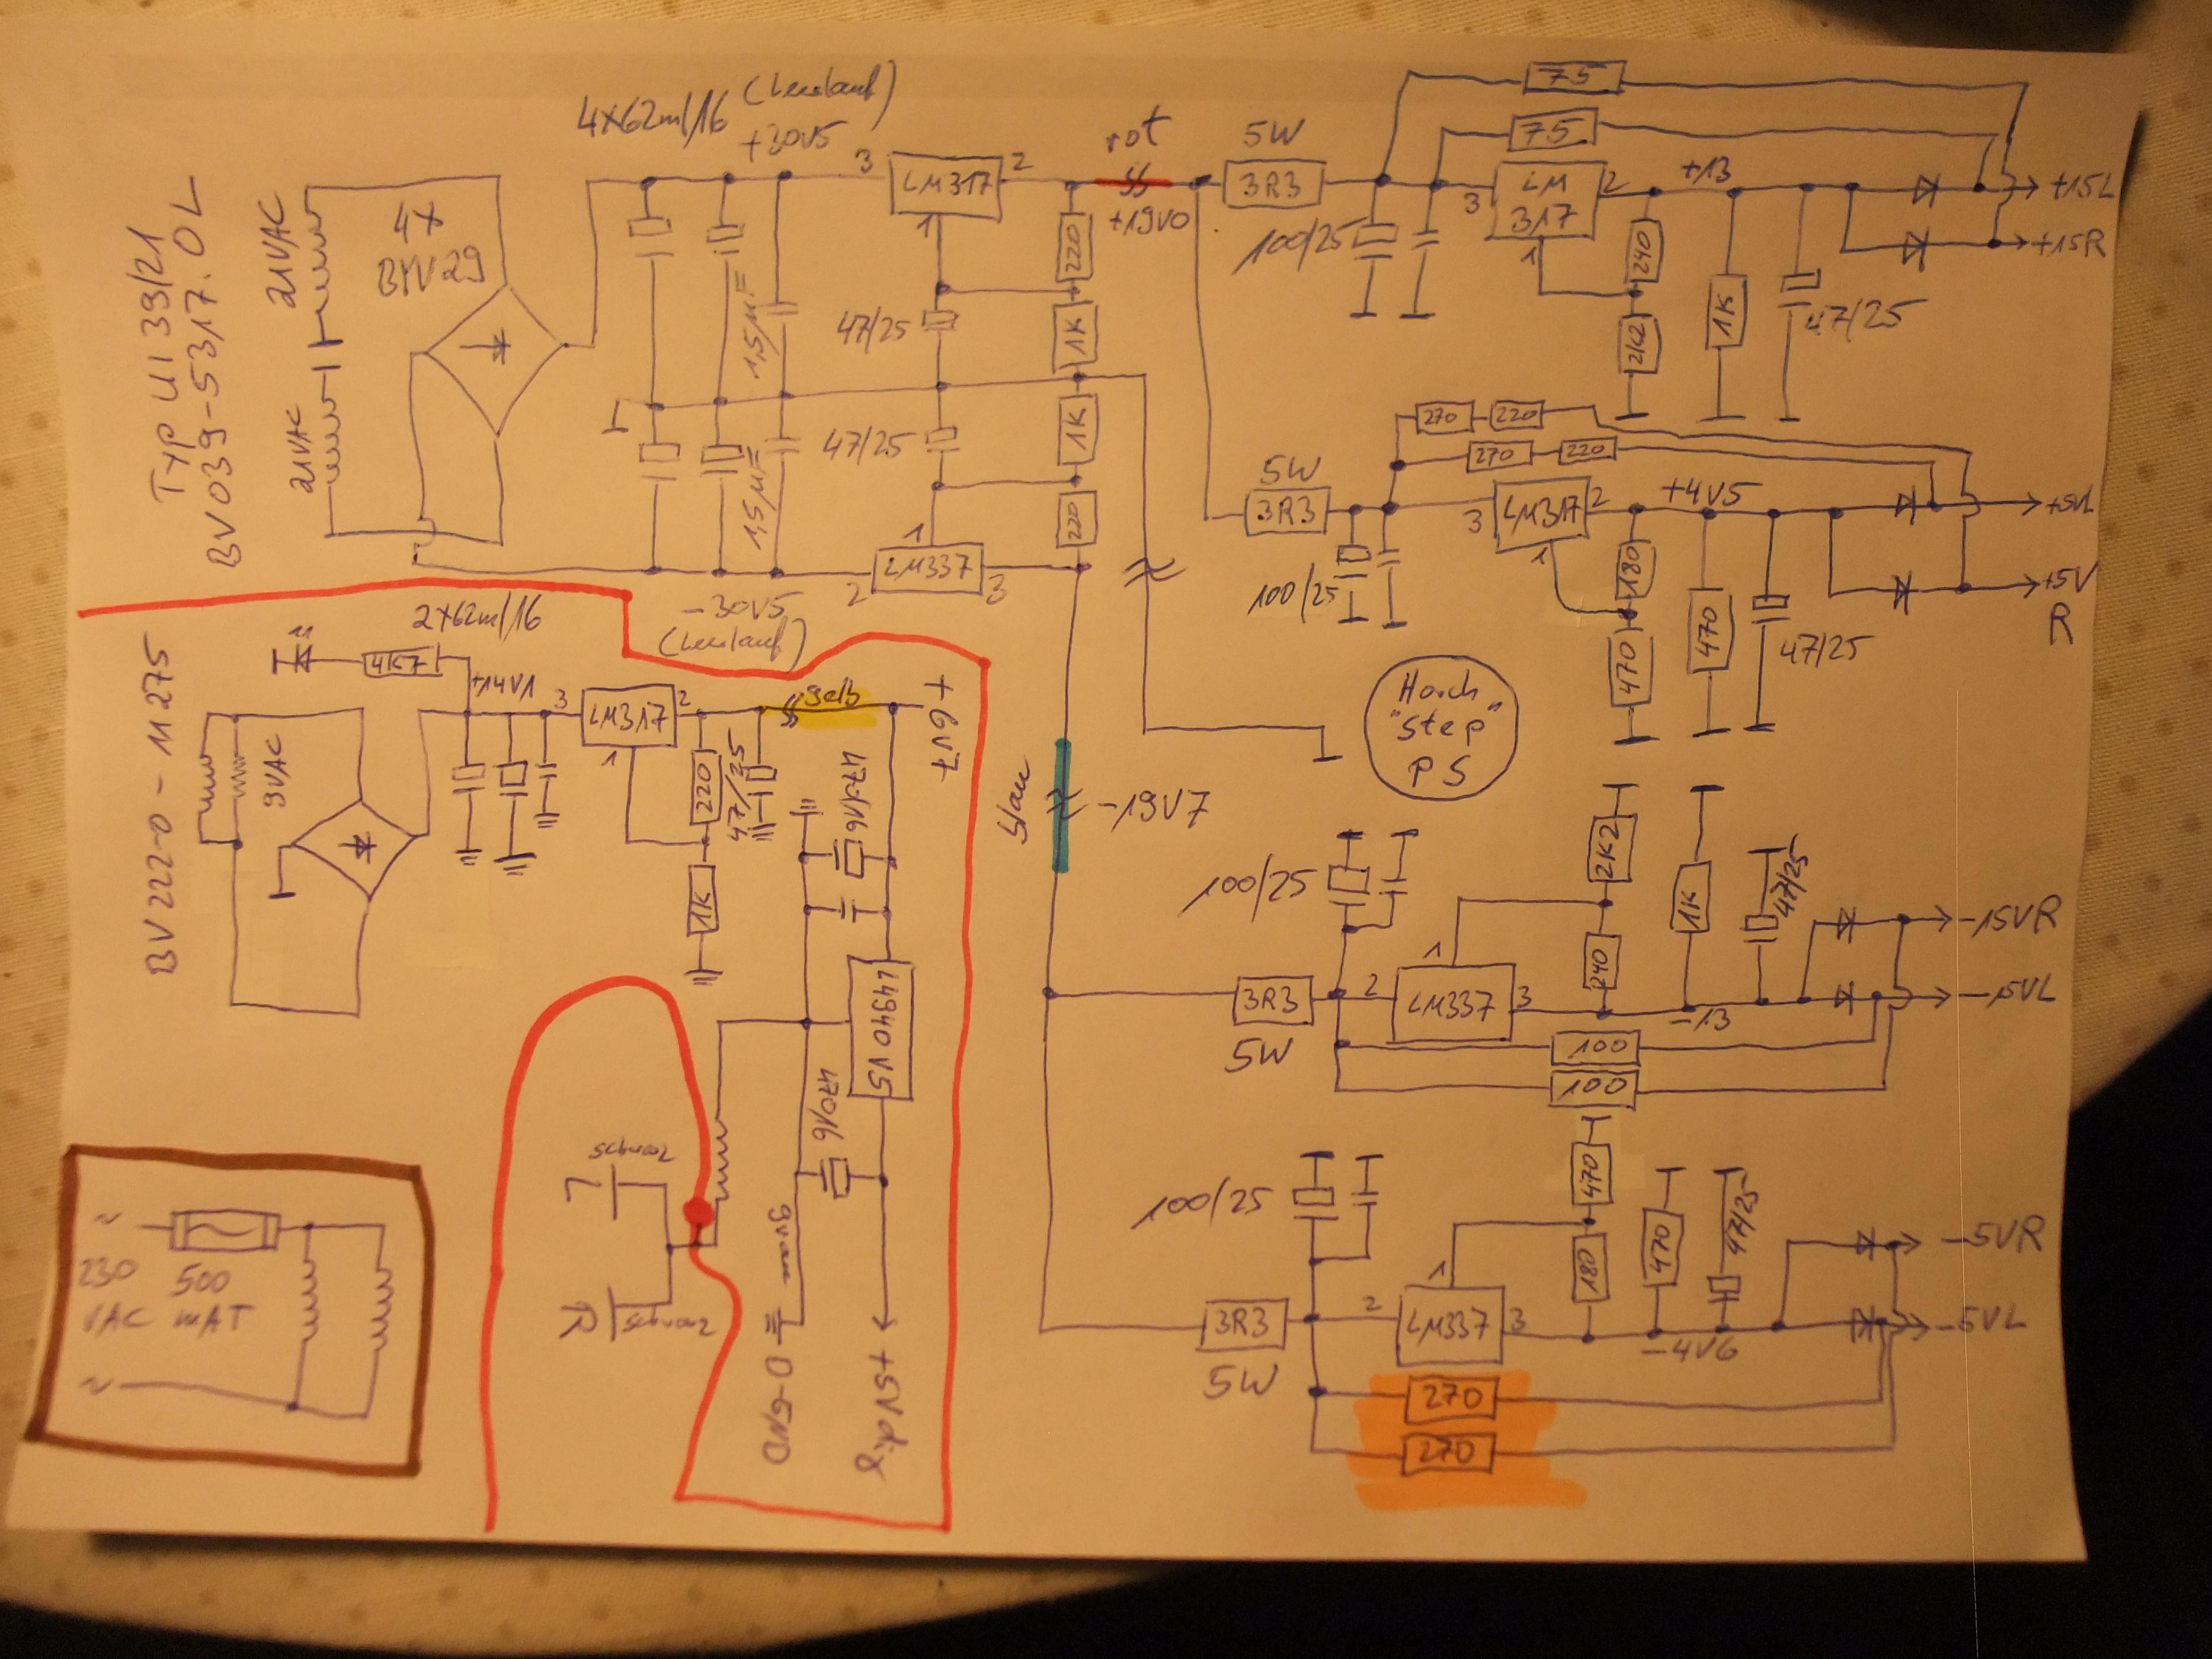 Typ UI 39/21
BV039-5317.0L
21VAC
21VAC
4X
BYV29
4X62m/16 (Leerlauf)
+30V5
1,5µF
1,5µF
-30V5
(Leerlauf)
3 LM317 2
1
47/25
47/25
220
1K
1K
220
1
2 LM337 3
rot
+19V0
5W
3R3
100/25
75
75
3 LM 317 2
1
+13
240
2K2
1K
47/25
+15L
+15R
5W
3R3
100/25
270 220
270 220
3 LM317 2
1
+4V5
180
470
470
47/25
+5VL
+5V
R
Horch
"Step"
PS
blau
-19V7
100/25
3R3
5W
2 LM337 3
1
2K2
240
1K
47/25
-13
100
100
-15VR
-15VL
100/25
3R3
5W
2 LM337 3
1
470
180
470
47/25
-4V6
270
270
-5VR
-5VL
BV2220-M275
9VAC
2X62m/16
4K7
+14V1
3 LM317 2
1
220
1K
47/25
gelb
+6V7
47/16
4940V5
470/16
+5Vdig
0-GND
schwarz
L
schwarz
R
~
230
VAC
500
mAT
~